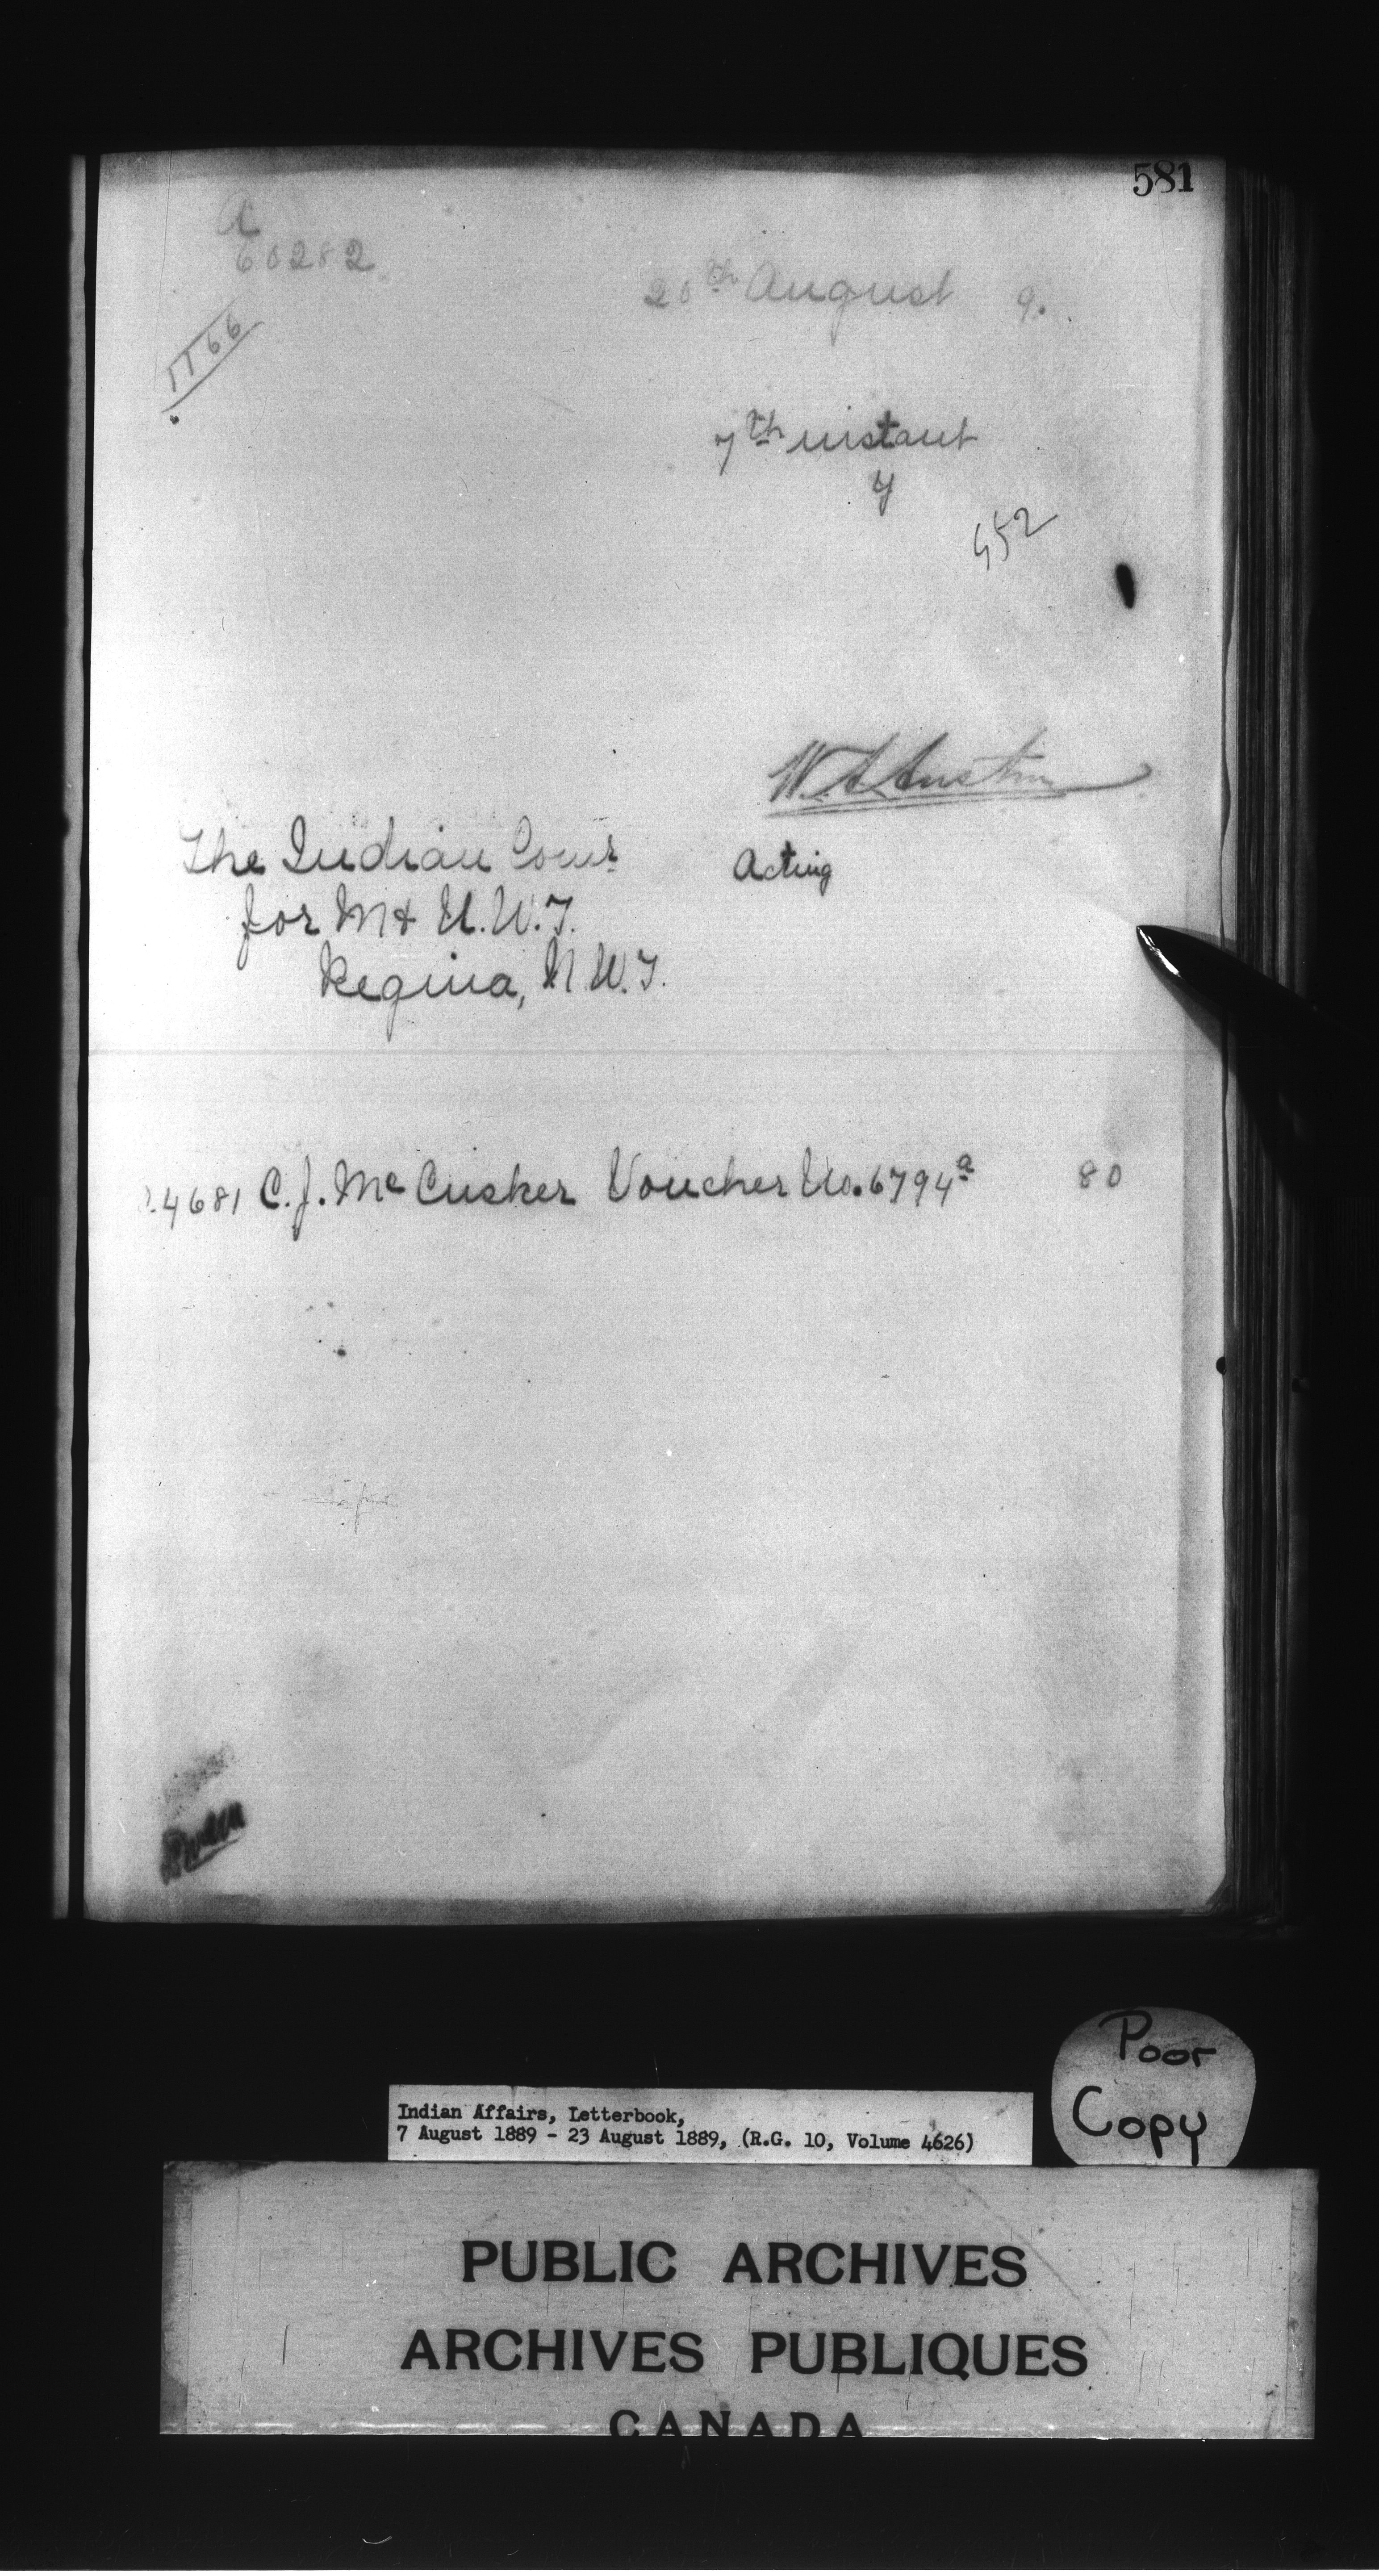 581
A
60282
20th August 9.
1166
7th instant
y
452
W. A. Austin
The Indian Comr
Acting
for M & N.W.T.
Regina, N.W.T.
.4681 C.J. McCusker Voucher No. 6794a 80
Poor
Copy
Indian Affairs, Letterbook,
7 August 1889 - 23 August 1889, (R.G. 10, Volume 4626)
PUBLIC ARCHIVES
ARCHIVES PUBLIQUES
CANADA